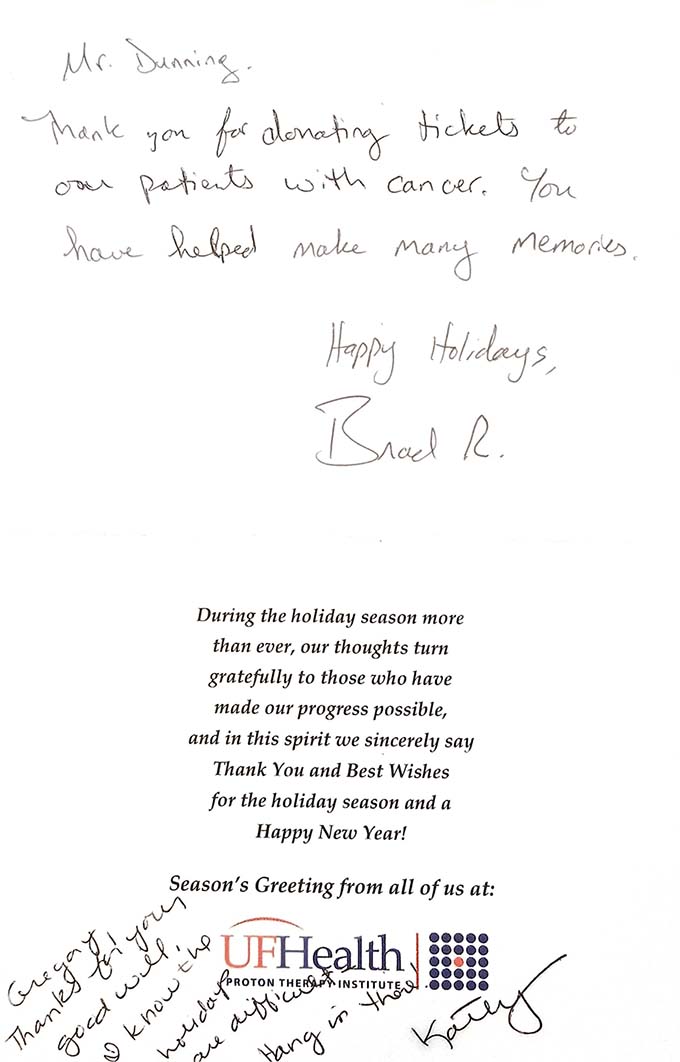 Mr. Dunning.
Thank you for donating tickets to
our patients with cancer. You
have helped make many memories.
Happy Holidays,
Brad R.
During the holiday season more
than ever, our thoughts turn
gratefully to those who have
made our progress possible,
and in this spirit we sincerely say
Thank You and Best Wishes
for the holiday season and a
Happy New Year!
Season's Greeting from all of us at:
UFHealth
PROTON THERAPY INSTITUTE
Gregory
Thanks for your
good will.
I know the
holidays
are difficult
Hang in there!
Kathy